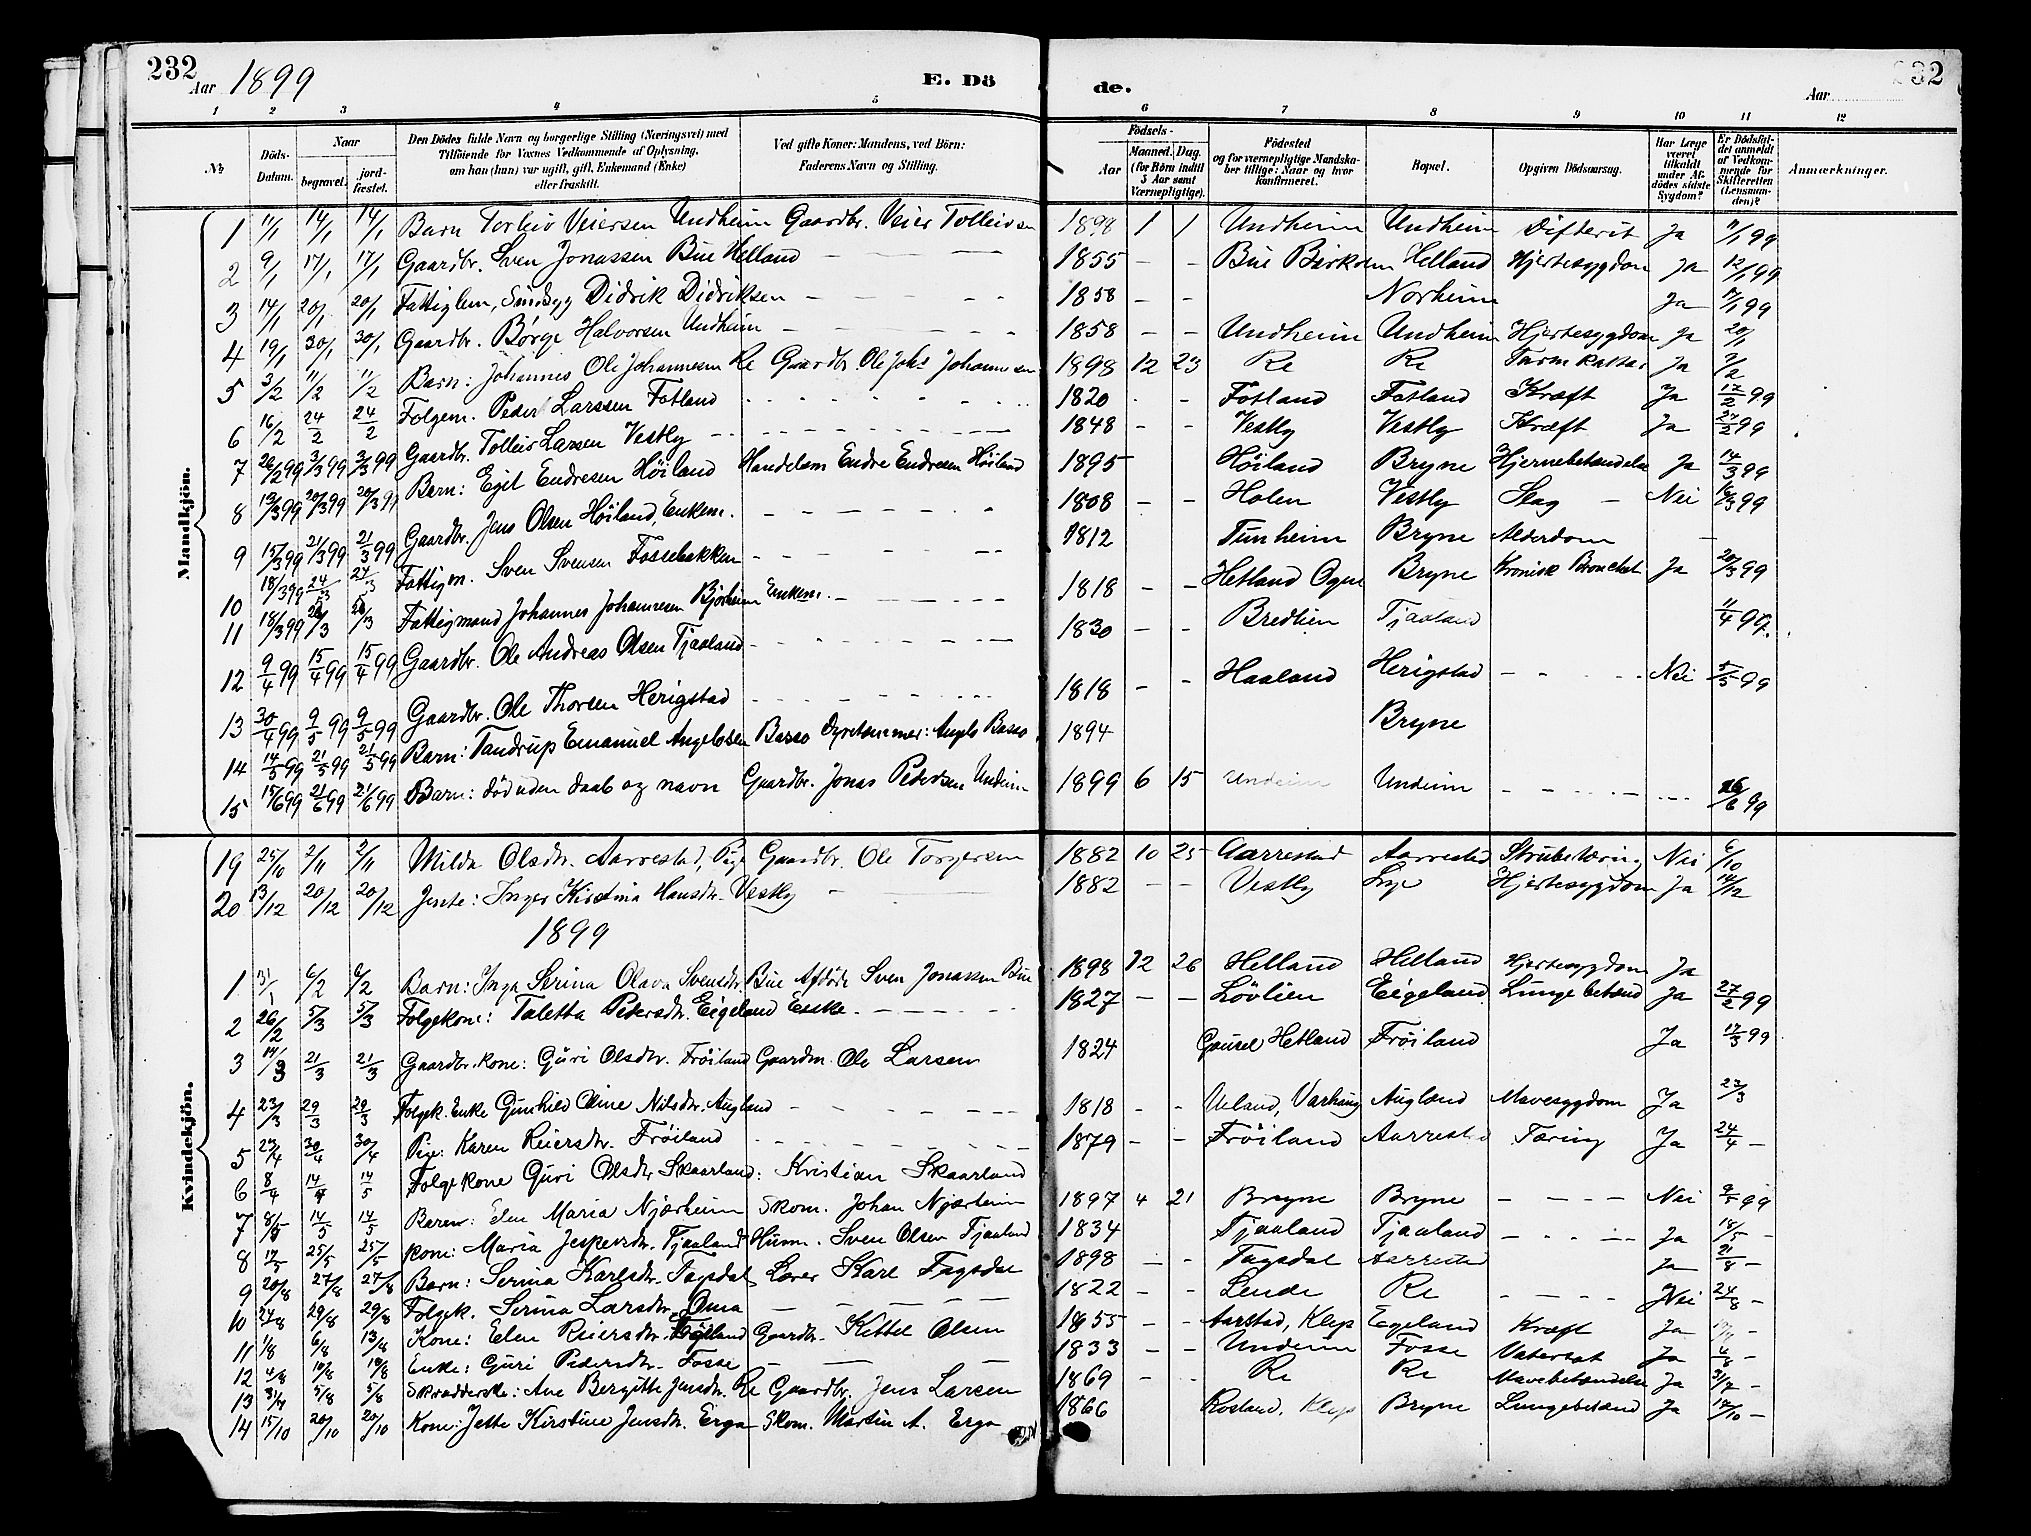 232
Aar 1899
E. Dö
de.
Aar
232
1 2 3 4 5 6 7 8 9 10 11 12
No
Döds-Datum.
Naar
begravet.
jord-fæstet.
Den Dödes fulde Navn og borgerlige Stilling (Næringsvei) med
Tilföiende for Voxnes Vedkommende af Oplysning,
om han (hun) var ugift, gift, Enkemand (Enke)
eller fraskilt.
Ved gifte Koner: Mandens, ved Börn:
Faderens Navn og Stilling.
Födsels-
Aar
Maaned. Dag.
(for Börn indtil 5 Aar samt Værnepligtige).
Födested
og for værnepligtige Mandskaber tillige: Naar og hvor konfirmeret.
Bopæl.
Opgiven Dödsaarsag.
Har Læge været tilkaldt under Afdödes sidste Sygdom?
Er Dödsfaldet anmeldt af Vedkommende for Skifteretten (Lensmanden)?
Anmærkninger.
Mandkjön.
1 11/1 14/1 14/1 Barn Torleiv Veiersen Undheim Gaardbr. Veier Tolleivsen 1898 1 1 Undheim Undheim Difterit Ja 11/1 99
2 9/1 17/1 17/1 Gaardbr. Sven Jonassen Bue Helland 1855 - - Bue Helland Hjertesygdom Ja 12/1 99
3 14/1 20/1 20/1 Fattiglem, Sindsyg Didrik Didriksen 1858 - - Norheim Ja 17/1 99
4 19/1 30/1 30/1 Gaardbr. Börge Halvorsen Undheim 1858 - - Undheim Undheim Hjertesygdom Ja 20/1
5 3/2 11/2 11/2 Barn: Johannes Ole Johannesen Re Gaardbr. Ole Johs Johannesen 1898 12 23 Re Re Tarmkattar Ja 7/2
6 16/2 24/2 24/2 Folgem. Peder Larssen Fotland 1820 - - Fotland Fotland Kræft Ja 17/2 99
7 26/2 99 3/3 99 3/3 99 Gaardbr. Tolleiv Larsen Vestly 1848 - - Vestly Vestly Kræft Ja 27/2 99
8 13/3 99 20/3 99 20/3 99 Barn: Egil Endresen Höiland Handelsm Endre Endresen Höiland 1895 Höiland Bryne Hjernebetændelse Ja 14/3 99
9 15/3 99 21/3 99 21/3 99 Gaardbr. Jens Olsen Höiland, Enkem. 1808 - - Holen Vestly Slag - Nei 16/3 99
10 18/3 99 24/3 24/3 Fattigm. Sven Svensen Fossebakken 1812 Tunheim Bryne Alderdom -
11 18/3 99 26/3 26/3 Fattigmand Johannes Johannesen Björheim Enkem. 1818 - - Hetland Ogne Bryne Kronisk Bronchit Ja 20/3 99
12 9/4 99 15/4 99 15/4 99 Gaardbr. Ole Andreas Olsen Tjaaland 1830 - - Bredlien Tjaaland 11/4 99.
13 30/4 99 9/5 99 9/5 99 Gaardbr. Ole Thorsen Herigstad 1818 - - Haaland Herigstad Nei 5/5 99
14 14/5 99 21/5 99 21/5 99 Barn: Tandrup Emanuel Angelosen Basso Angelo Basso 1894 Bryne
15 15/6 99 21/6 99 21/6 99 Barn: död uden daab og navn Gaardbr. Jonas Pedersen Undeim 1899 6 15 Undeim Undeim 16/6 99
Kvindekjön.
19 25/10 2/11 2/11 Milda Olsdtr. Aarrestad, Pige Gaardbr. Ole Torgersen 1882 10 25 Aarrestad Aarrestad Strubetæring Nei 6/10
20 13/12 20/12 20/12 Jente: Inger Kirstina Hansdtr. Vestly 1882 - - Vestly Lye Hjertesygdom Ja 14/12
1899
1 31/1 6/2 6/2 Barn: Inga Serina Olava Svensdtr. Bue Afdöde Sven Jonassen Bue 1898 12 26 Helland Helland Hjertesygdom Ja
2 26/2 5/3 5/3 Folgekone: Taletta Pedersdtr. Eigeland Enke. 1827 - - Lövlien Eigeland Lungebetænd Ja 27/2 99
3 14/3 21/3 21/3 Gaardbr. kone: Guri Olsdtr. Fröiland Gaardm. Ole Larsen 1824 Gausel Hetland Fröiland Ja 17/3 99
4 23/3 29/3 29/3 Folgek. Enke Gunhild Oline Nilsdtr. Augland 1818 - - Ueland, Varhaug Augland Mavesygdom Ja 27/3
5 23/4 30/4 30/4 Pige: Karen Reiersdtr. Fröiland 1879 - - Fröiland Aarrestad Tæring Ja 24/4 -
6 8/4 14/4 14/5 Folgekone Guri Olsdtr Skaarland: Kristian Skaarland
7 8/5 14/5 14/5 Barn: Elen Maria Njærheim Skom. Johan Njærheim 1897 4 21 Bryne Bryne - - - - Nei 9/5 99
8 17/5 25/5 25/5 Kone: Maria Jespersdtr. Tjaaland Husm. Sven Olsen Tjaaland 1834 Tjaaland Tjaaland Ja 18/5 -
9 20/8 27/8 27/8 Barn: Serina Karlsdtr. Fagsdal Lærer Karl Fagsdal 1898 - - Fagsdal Aarrestad Ja 21/8 -
10 24/8 29/8 29/8 Folgek. Serina Larsdtr. Oma 1822 - - Lende Re Nei 24/8 -
11 1/8 6/8 13/8 Kone: Elen Reiersdtr. Gaardbr. Kittel Olsen 1855 - - Aarstad, Klep Egeland Kræft Ja
12 4/8 10/8 10/8 Enke: Guri Pedersdtr. Fosse 1833 - - Undeim Fosse Vatersot Ja 4/8 -
13 31/7 5/8 5/8 Skrædderske: Ane Bergitte Jensdtr. Re Gaardbr. Jens Larsen 1869 - - Re Re Mavebetændelse Ja 31/7 -
14 15/10 20/10 20/10 Kone: Jette Kirstine Jensdtr. Erga Skom. Martin A. Erga 1866 Rosland, Klep Bryne Lungebetænd Ja 17/10 -